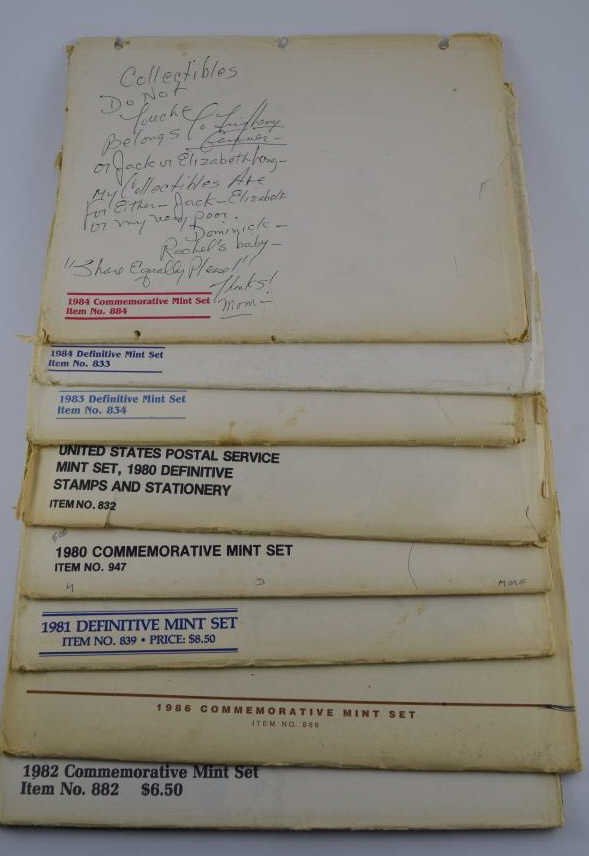 Collectibles
Do Not
Touche
Belongs To
or Jack or Elizabeth
My Collectibles Are
for Either - Jack - Elizabeth
or my very poor.
Dominick -
Rachel's baby -
"Share Equally Please!"
Thanks!
Mom -
1984 Commemorative Mint Set
Item No. 884
1984 Definitive Mint Set
Item No. 833
1983 Definitive Mint Set
Item No. 834
UNITED STATES POSTAL SERVICE
MINT SET, 1980 DEFINITIVE
STAMPS AND STATIONERY
ITEM NO. 832
1980 COMMEMORATIVE MINT SET
ITEM NO. 947
1981 DEFINITIVE MINT SET
ITEM NO. 839 • PRICE: $8.50
1986 COMMEMORATIVE MINT SET
ITEM NO. 886
1982 Commemorative Mint Set
Item No. 882 $6.50